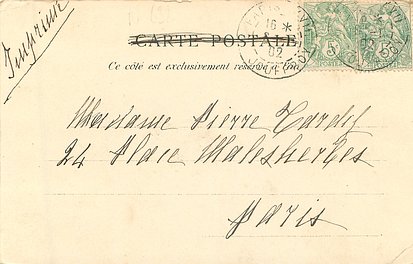 Imprimé
CARTE POSTALE
Ce côté est exclusivement réservé à
16
02
5
Madame Pierre Tardif
24 Place Malesherbes
Paris